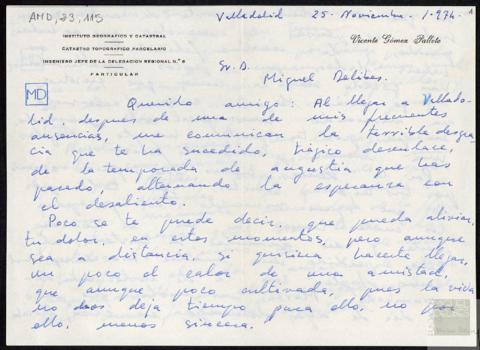 AMD, 23, 115
Valladolid 25-Noviembre-1.974-
INSTITUTO GEOGRAFICO Y CATASTRAL
CATASTRO TOPOGRAFICO PARCELARIO
INGENIERO JEFE DE LA DELEGACION REGIONAL N.º 6
PARTICULAR
Vicente Gómez Pallete
Sr. D.
Miguel Delibes.
MD
Querido amigo: Al llegar a Vallado-
lid, despues de una de mis frecuentes
ausencias, me comunican la terrible desgra-
cia que te ha sucedido, trágico desenlace,
de la temporada de angustia que has
pasado, alternando la esperanza con
el desaliento.
Poco se te puede decir, que pueda aliviar,
tu dolor, en estos momentos, pero aunque
sea a distancia, si quisiera hacerte llegar,
un poco el calor de una amistad,
que aunque poco cultivada, pues la vida
no nos deja tiempo para ello, no por
ello, menos sincera.